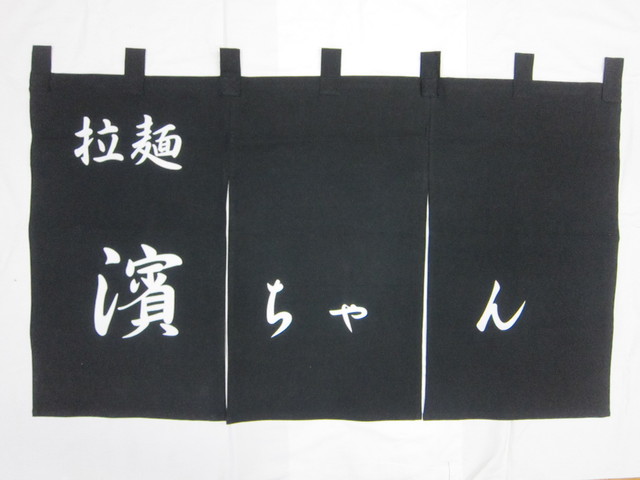 拉麺
濱ちゃん